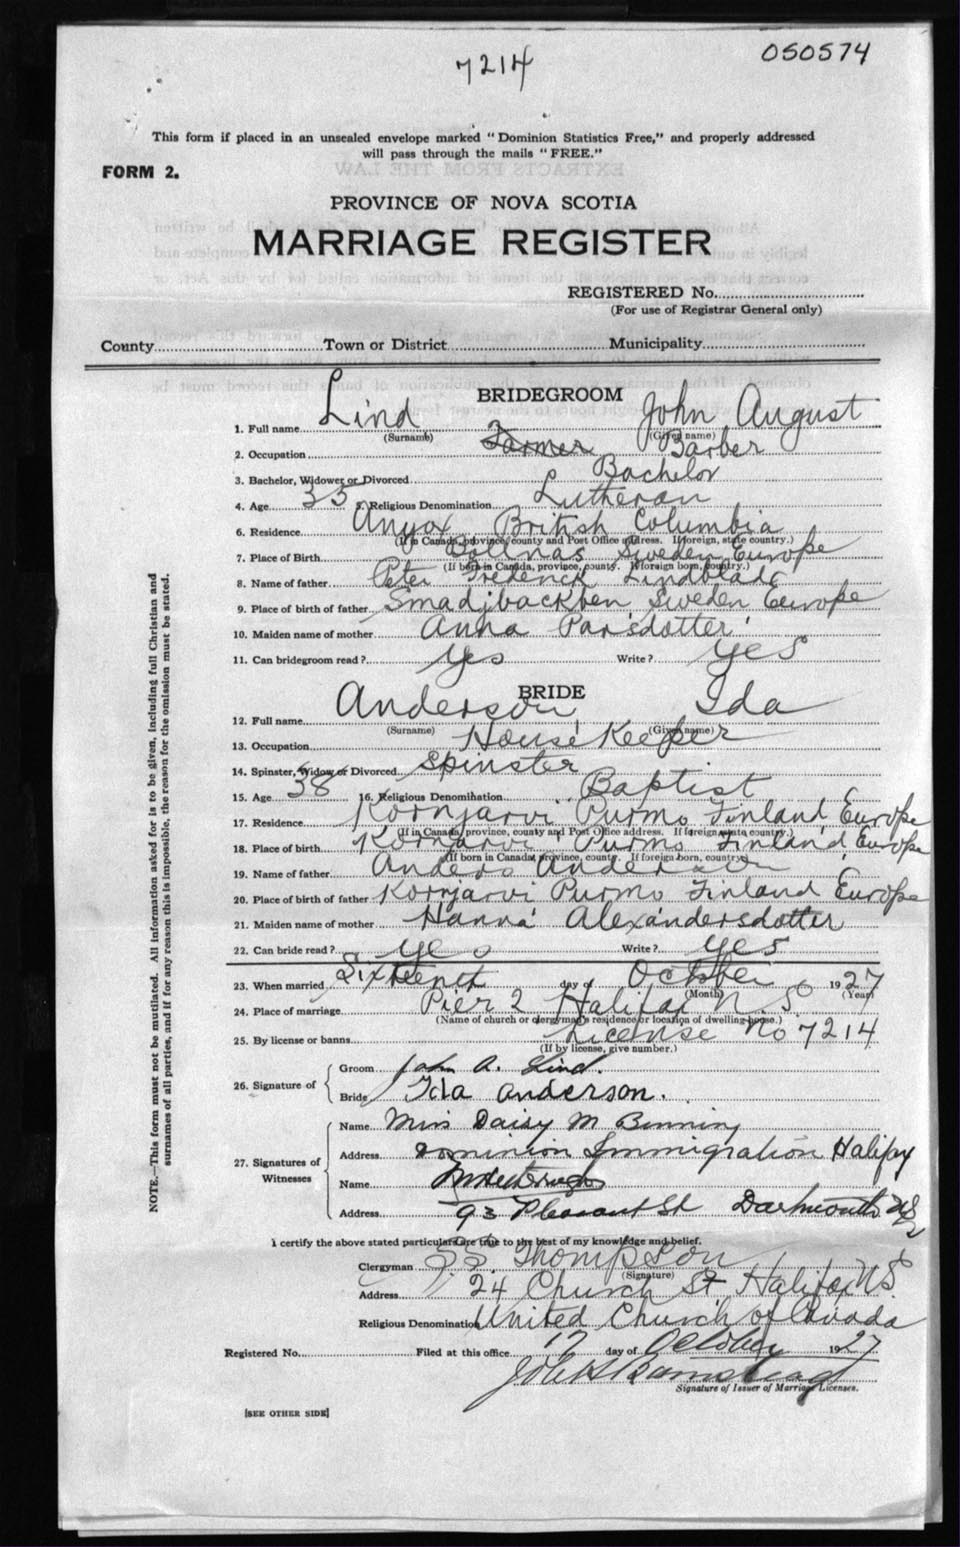 7214
050574
This form if placed in an unsealed envelope marked "Dominion Statistics Free," and properly addressed
will pass through the mails "FREE."
FORM 2.
PROVINCE OF NOVA SCOTIA
MARRIAGE REGISTER
REGISTERED No.
(For use of Registrar General only)
County Town or District Municipality
BRIDEGROOM
1. Full name Lind John August
(Surname) (Given name)
2. Occupation Farmer Barber
3. Bachelor, Widower or Divorced Bachelor
4. Age 35 5. Religious Denomination Lutheran
6. Residence Anyox British Columbia
(If in Canada, province, county and Post Office address. If foreign, state country.)
7. Place of Birth Bollnas Sweden Europe
(If born in Canada, province, county. If foreign born, country.)
8. Name of father Peter Frederick Lindblade
9. Place of birth of father Smadjbackben, Sweden Europe
10. Maiden name of mother Anna Parsdotter
11. Can bridegroom read? Yes Write? Yes
BRIDE
12. Full name Anderson, Ida
(Surname) (Given name)
13. Occupation House Keeper
14. Spinster, Widow or Divorced Spinster
15. Age 38 16. Religious Denomination Baptist
17. Residence Kornjarvi Purmo Finland, Europe
(If in Canada, province, county and Post Office address. If foreign state country.)
18. Place of birth Kornjarvi Purmo Finland, Europe
(If born in Canada, province, county. If foreign born, country)
19. Name of father Anders Anderson
20. Place of birth of father Kornjarvi Purmo Finland Europe
21. Maiden name of mother Hanna Alexandersdotter
22. Can bride read? Yes Write? Yes
23. When married Sixteenth day of October 1927
(Month) (Year)
24. Place of marriage Pier 2 Halifax N.S.
(Name of church or clergyman's residence or location of dwelling-house.)
25. By license or banns License No 7214
(If by license, give number.)
26. Signature of
Groom John A. Lind.
Bride Ida Anderson.
27. Signatures of Witnesses
Name Miss Daisy M Binning
Address Dominion Immigration Halifax
Name
Address 93 Pleasant St Dartmouth NS
I certify the above stated particulars are true to the best of my knowledge and belief.
Clergyman Thompson
(Signature)
Address 24 Church St Halifax N.S.
Religious Denomination United Church of Canada
Registered No. Filed at this office 17 day of October 1927
Signature of Issuer of Marriage Licenses.
[SEE OTHER SIDE]
NOTE.—This form must not be mutilated. All information asked for is to be given, including full Christian and
surnames of all parties, and if for any reason this is impossible, the reason for the omission must be stated.